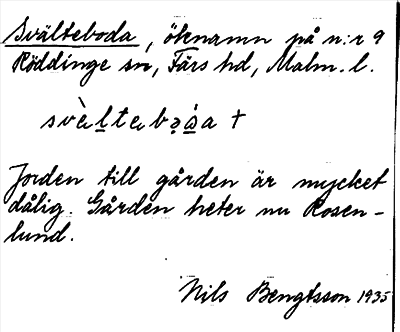 Svälteboda, öknamn på n:r 9
Röddinge sn, Färs hd, Malm. l.
svèltebǫ̀ɑ +
Jorden till gården är mycket
dålig. Gården heter nu Rosen-
lund.
Nils Bengtsson 1935